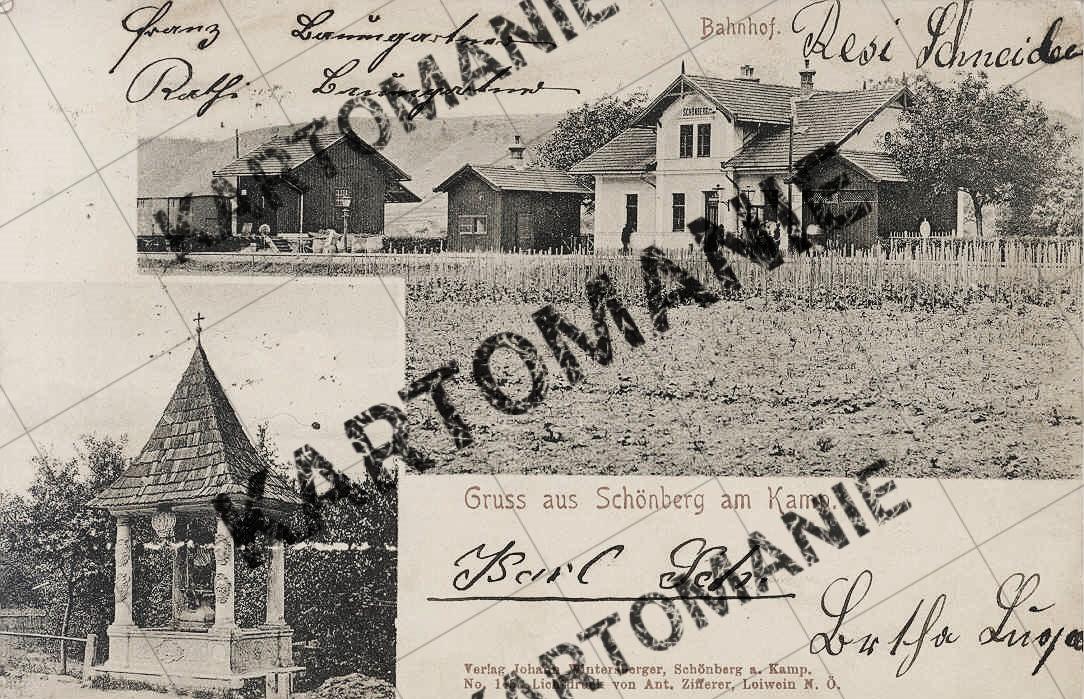 Franz Baumgartner
Bahnhof.
Resi Schneider
Rathi Baumgartner
SCHÖNBERG
KARTOMANIE
KARTOMANIE
KARTOMANIE
KARTOMANIE
Gruss aus Schönberg am Kamp.
Karl Sch.
Verlag Johann Wintersberger, Schönberg a. Kamp.
Lichtdruck von Ant. Zifferer, Loiwein N. Ö.